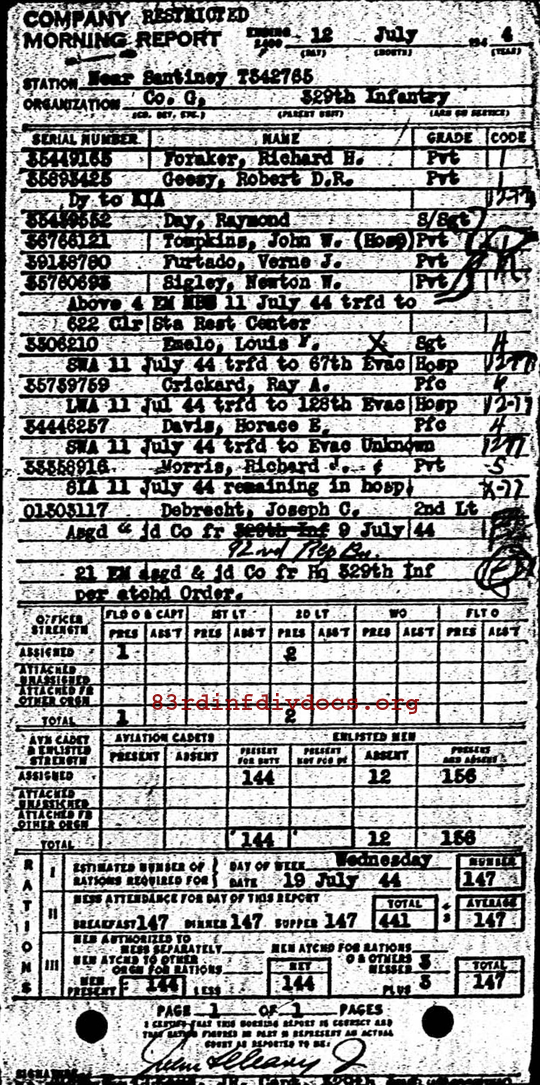 COMPANY RESTRICTED
MORNING REPORT ENDING 2400 12 July 194 4
(DAY) (MONTH) (YEAR)
STATION Near Santiney T342765
ORGANIZATION Co. G, 329th Infantry
(CO. DET. ETC.) (PARENT UNIT) (ARM OR SERVICE)
SERIAL NUMBER NAME GRADE CODE
35449165 Foraker, Richard H. Pvt
35893425 Geesy, Robert D.R. Pvt
Dy to KIA
35439552 Day, Raymond S/Sgt
36766121 Tompkins, John W. (Hosp) Pvt
39138780 Furtado, Verne J. Pvt
35760693 Sigley, Newton W. Pvt
Above 4 EM NBS 11 July 44 trfd to
622 Clr Sta Rest Center
3306210 Emelo, Louis F. X Sgt
SWA 11 July 44 trfd to 67th Evac Hosp
35739759 Crickard, Ray A. Pfc
LWA 11 Jul 44 trfd to 128th Evac Hosp
34446257 Davis, Horace E. Pfc
SWA 11 July 44 trfd to Evac Unknown
33358916 Morris, Richard J. Pvt
SIA 11 July 44 remaining in hosp
01303117 Debrecht, Joseph C. 2nd Lt
Asgd & jd Co fr 329th Inf 9 July 44
92nd Rep Bn.
21 EM asgd & jd Co fr Hq 329th Inf
per atchd Order.
OFFICER STRENGTH FLD O & CAPT 1ST LT 2D LT WO FLT O
PRES ABS'T PRES ABS'T PRES ABS'T PRES ABS'T PRES ABS'T
ASSIGNED 1 2
ATTACHED UNASSIGNED
ATTACHED FR OTHER ORGN
83rdinfdivdocs.org
TOTAL 1 2
AVN CADET & ENLISTED STRENGTH AVIATION CADETS ENLISTED MEN
PRESENT ABSENT PRESENT FOR DUTY PRESENT NOT FOR DY ABSENT PRESENT AND ABSENT
ASSIGNED 144 12 156
ATTACHED UNASSIGNED
ATTACHED FR OTHER ORGN
TOTAL 144 12 156
RATIONS
I ESTIMATED NUMBER OF RATIONS REQUIRED FOR DAY OF WEEK Wednesday NUMBER
DATE 19 July 44 147
II MESS ATTENDANCE FOR DAY OF THIS REPORT TOTAL ÷ 3 AVERAGE
BREAKFAST 147 DINNER 147 SUPPER 147 441 147
III MEN AUTHORIZED TO MESS SEPARATELY MEN ATCHD FOR RATIONS
MEN ATCHD TO OTHER ORGN FOR RATIONS NET O & OTHERS MESSED 3 TOTAL
MEN PRESENT 144 LESS 144 PLUS 3 147
PAGE 1 OF 1 PAGES
I CERTIFY THAT THIS MORNING REPORT IS CORRECT AND
THAT RATION FIGURES IN PART II REPRESENT AN ACTUAL
COUNT AS REPORTED TO ME:
SIGNATURE